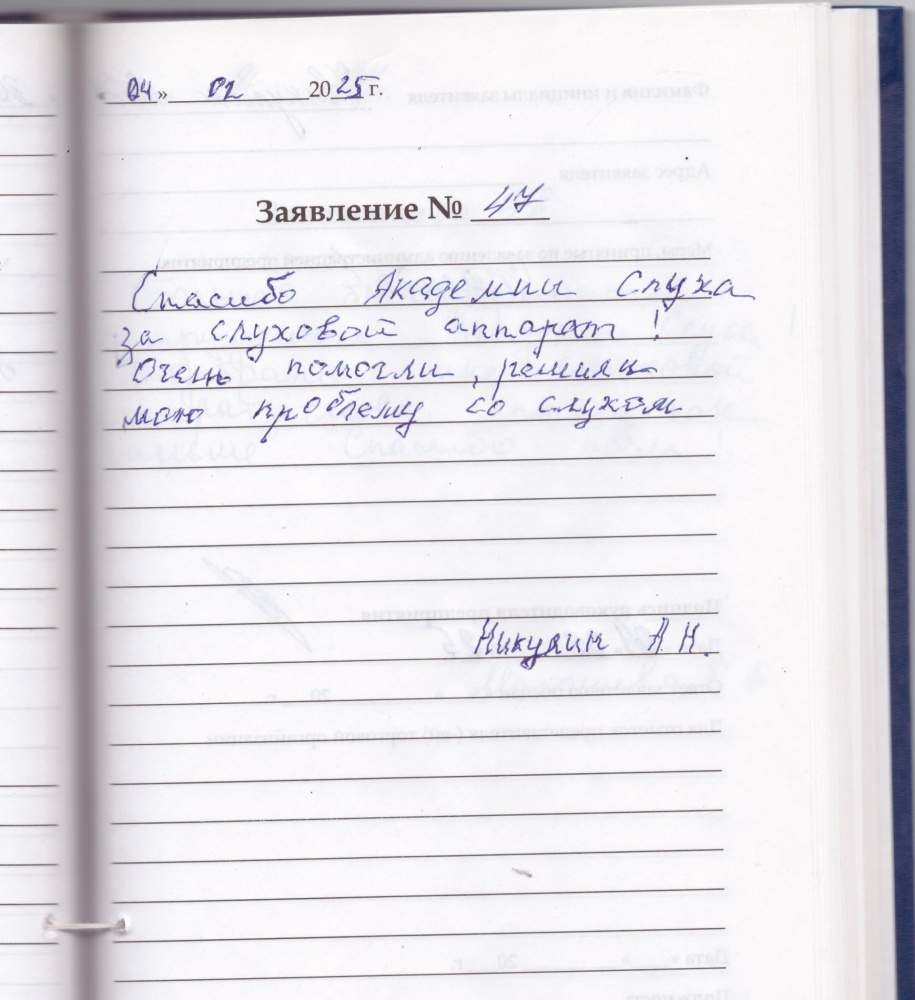 04 » 02 2025 г.
Заявление № 47
Спасибо Академии Слуха
за слуховой аппарат!
Очень помогли, решили
мою проблему со слухом
Никулин А.Н.